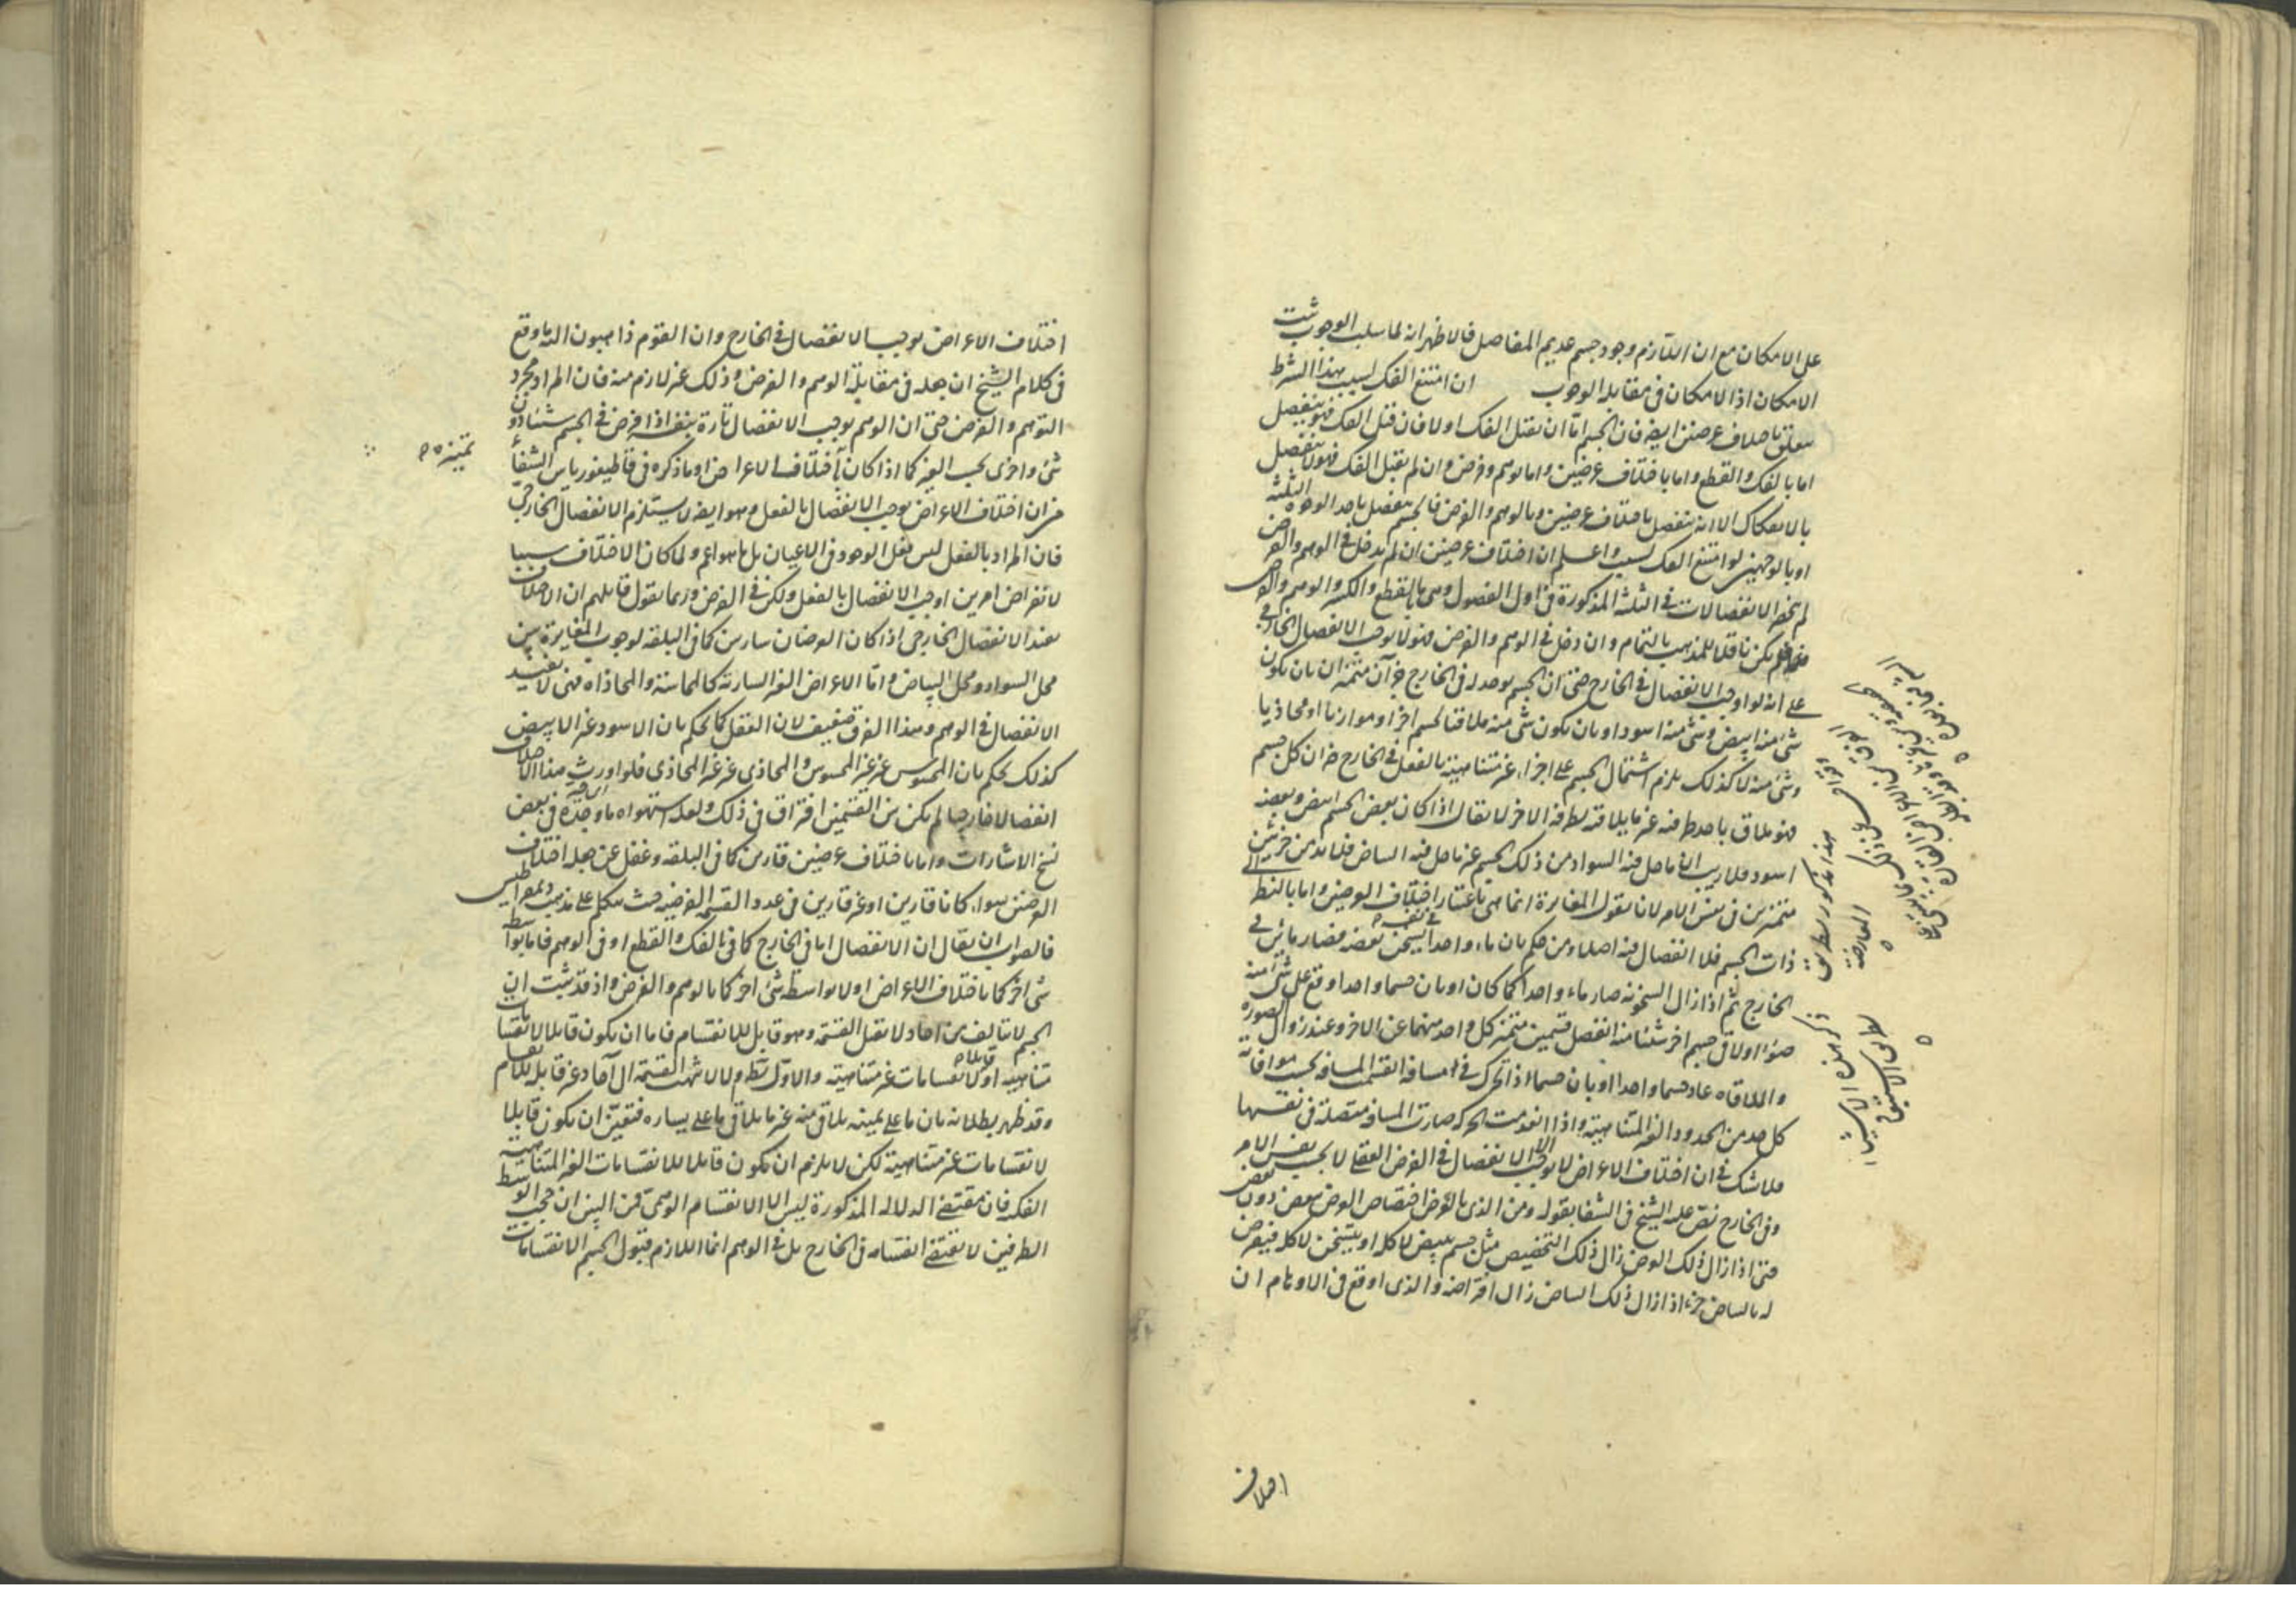 على الامكان مع ان اللازم وجود جسم عديم المفاصل فالاظهر انه لما سلب الوجوب ثبت
الامكان اذ الامكان فى مقابله الوجوب ان امتنع الفك لسبب بهذا الشرط
باختلاف عرضين ايضه فان الجسم اما ان يقبل الفك اولا فان قبل الفك فهو ينفصل
اما بالفك والقطع واما باختلاف عرضين واما بوهم وفرض وان لم يقبل الفك فهو لا ينفصل
بالانفكاك الا انه ينفصل باختلاف عرضين وبالوهم والفرض فالجسم ينفصل باحد الوجوه الثلثة
او بالوجهين لو امتنع الفك لسبب واعلم ان اختلاف عرضين ان لم يدخل فى الوهم والفرض
لم تنحصر الانفصالات فى الثلثة المذكورة فى اول الفصول وهى ما بالقطع والكسر والوهم والفرض
فلم يكن ناقلا للمذهب بالتمام وان دخل فى الوهم والفرض فهو لا يوجب الانفصال الخارجى
على انه لو اوجب الانفصال فى الخارج حتى ان الجسم يوجد له فى الخارج جزآن متميزان بان يكون
شئ منه ابيض وشئ منه اسود او بان يكون شئ منه ملاقيا لجسم اخر او موازيا او محاذيا
وشئ منه لا كذلك يلزم اشتمال الجسم على اجزاء غير متناهية بالفعل فى الخارج ضران كل جسم
فهو ملاق باحد طرفيه غير ما يلاقيه بطرفه الاخر لا يقال اذا كان بعض الجسم ابيض وبعضه
اسود فلا ريب ان ما حل فيه السواد من ذلك الجسم غير ما حل فيه البياض فلا بد من جزئين
متميزين فى نفس الامر لانا نقول المغايرة انما هى باعتبار اختلاف العرضين واما بالنظر الى
ذات الجسم فلا انفصال فيه اصلا ومن حكم بان ماء واحدا يسخن بعضه فصار مائين فى
الخارج ثم اذا زال السخونة صار ماء واحدا كما كان او بان جسما واحدا وقع على شئ منه
ضوء او لاقى جسم اخر شيئا منه انفصل قسمين متميز كل واحد منهما عن الاخر وعند زوال الضوء
والملاقاه عاد جسما واحدا او بان جسما اذا تحرك فى مسافة انقسمت المسافه بحسب موافاته
كل حد من الحدود الغير المتناهية واذا انعدمت الحركه صارت المسافه متصلة فى نفسها
فلا شك فى ان اختلاف الاعراض لا يوجب الا الانفصال فى الفرض العقلى لا بحسب نفس الامر
وفى الخارج نص عليه الشيخ فى الشفا بقوله ومن الذى بالعرض اختصاص العرض ببعض دون بعض
حتى اذا زال ذلك العرض زال ذلك التخصيص مثل جسم يبيض لا كله او يتسخن لا كله فيفرض
له بالبياض جزء اذا زال ذلك البياض زال افتراضه والذى اوقع فى الاوهام ان
اختلاف
اختلاف الاعراض يوجب الانفصال فى الخارج وان القوم ذاهبون اليه ما وقع
فى كلام الشيخ ان جعله فى مقابلة الوهم والفرض وذلك غير لازم منه فان المراد مجرد
التوهم والفرض حتى ان الوهم يوجب الانفصال تارة بنفسه اذا فرض فى الجسم شيئا دون
شئ واخرى بحسب الغير كما اذا كان باختلاف الاعراض او ما ذكره فى قاطيغورياس الشفاء
من ان اختلاف الاعراض يوجب الانفصال بالفعل وهو ايضه لا يستلزم الانفصال الخارجى
فان المراد بالفعل ليس بفعل الوجود فى الاعيان بل ما هو اعم ولما كان الاختلاف سببا
لافتراض امرين اوجب الانفصال بالفعل ولكن فى الفرض وربما يقول قائلهم ان الاختلاف
يفيد الانفصال الخارجى اذا كان العرضان سارين كما فى البلقه لوجوب المغايرة بين
محل السواد ومحل البياض واما الاعراض الغير السارية كالمماسة والمحاذاه فهى لا تفيد
الانفصال فى الوهم وهذا الفرق ضعيف لان العقل كما يحكم بان الاسود غير الابيض
كذلك يحكم بان المحسوس غير غير المحسوس والمحاذى غير غير المحاذى فلو اورث هذا الاختلاف
انفصالا خارجيا لم يكن بين القسمين افتراق فى ذلك ولعله استهواه ما وجده فى بعض
نسخ الاشارات واما باختلاف عرضين قارين كما فى البلقه وغفل عن جعله اختلاف
العرضين سواء كانا قارين او غير قارين فى عدد القسمه الفرضيه حيث تكلم على مذهب ديمقراطيس
فالصواب ان يقال ان الانفصال اما فى الخارج كما فى الفك والقطع او فى الوهم فاما بواسطة
شئ اخر كما باختلاف الاعراض او لا بواسطة شئ اخر كما بالوهم والفرض واذ قد ثبت ان
الجسم لا يتالف من احاد لا تقبل القسمة وهو قابل للانقسام فاما ان يكون قابلا لانقسامات
متناهيه او قابلا لانقسامات غير متناهيته والاول بط والا لانتهت القسمة الى آحاد غير قابله للانقسام
وقد ظهر بطلانه بان ما على يمينه يلاقى منه غير ما يلاقى ما على يساره فتعين ان يكون قابلا
لانقسامات غير متناهية لكن لا يلزم ان يكون قابلا للانقسامات الغير المتناهية
الفكيه فان مقتضى الدلاله المذكورة ليس الا الانقسام الوهمى فمن البين ان حجب الوسط
الطرفين لا يقتضى انقسامه فى الخارج بل فى الوهم انما اللازم قبول الجسم الانقسامات